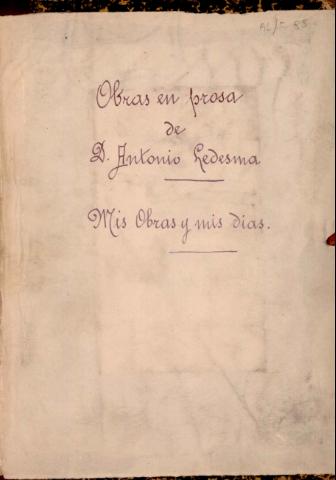 Obras en prosa
de
D. Antonio Ledesma
Mis Obras y mis dias.